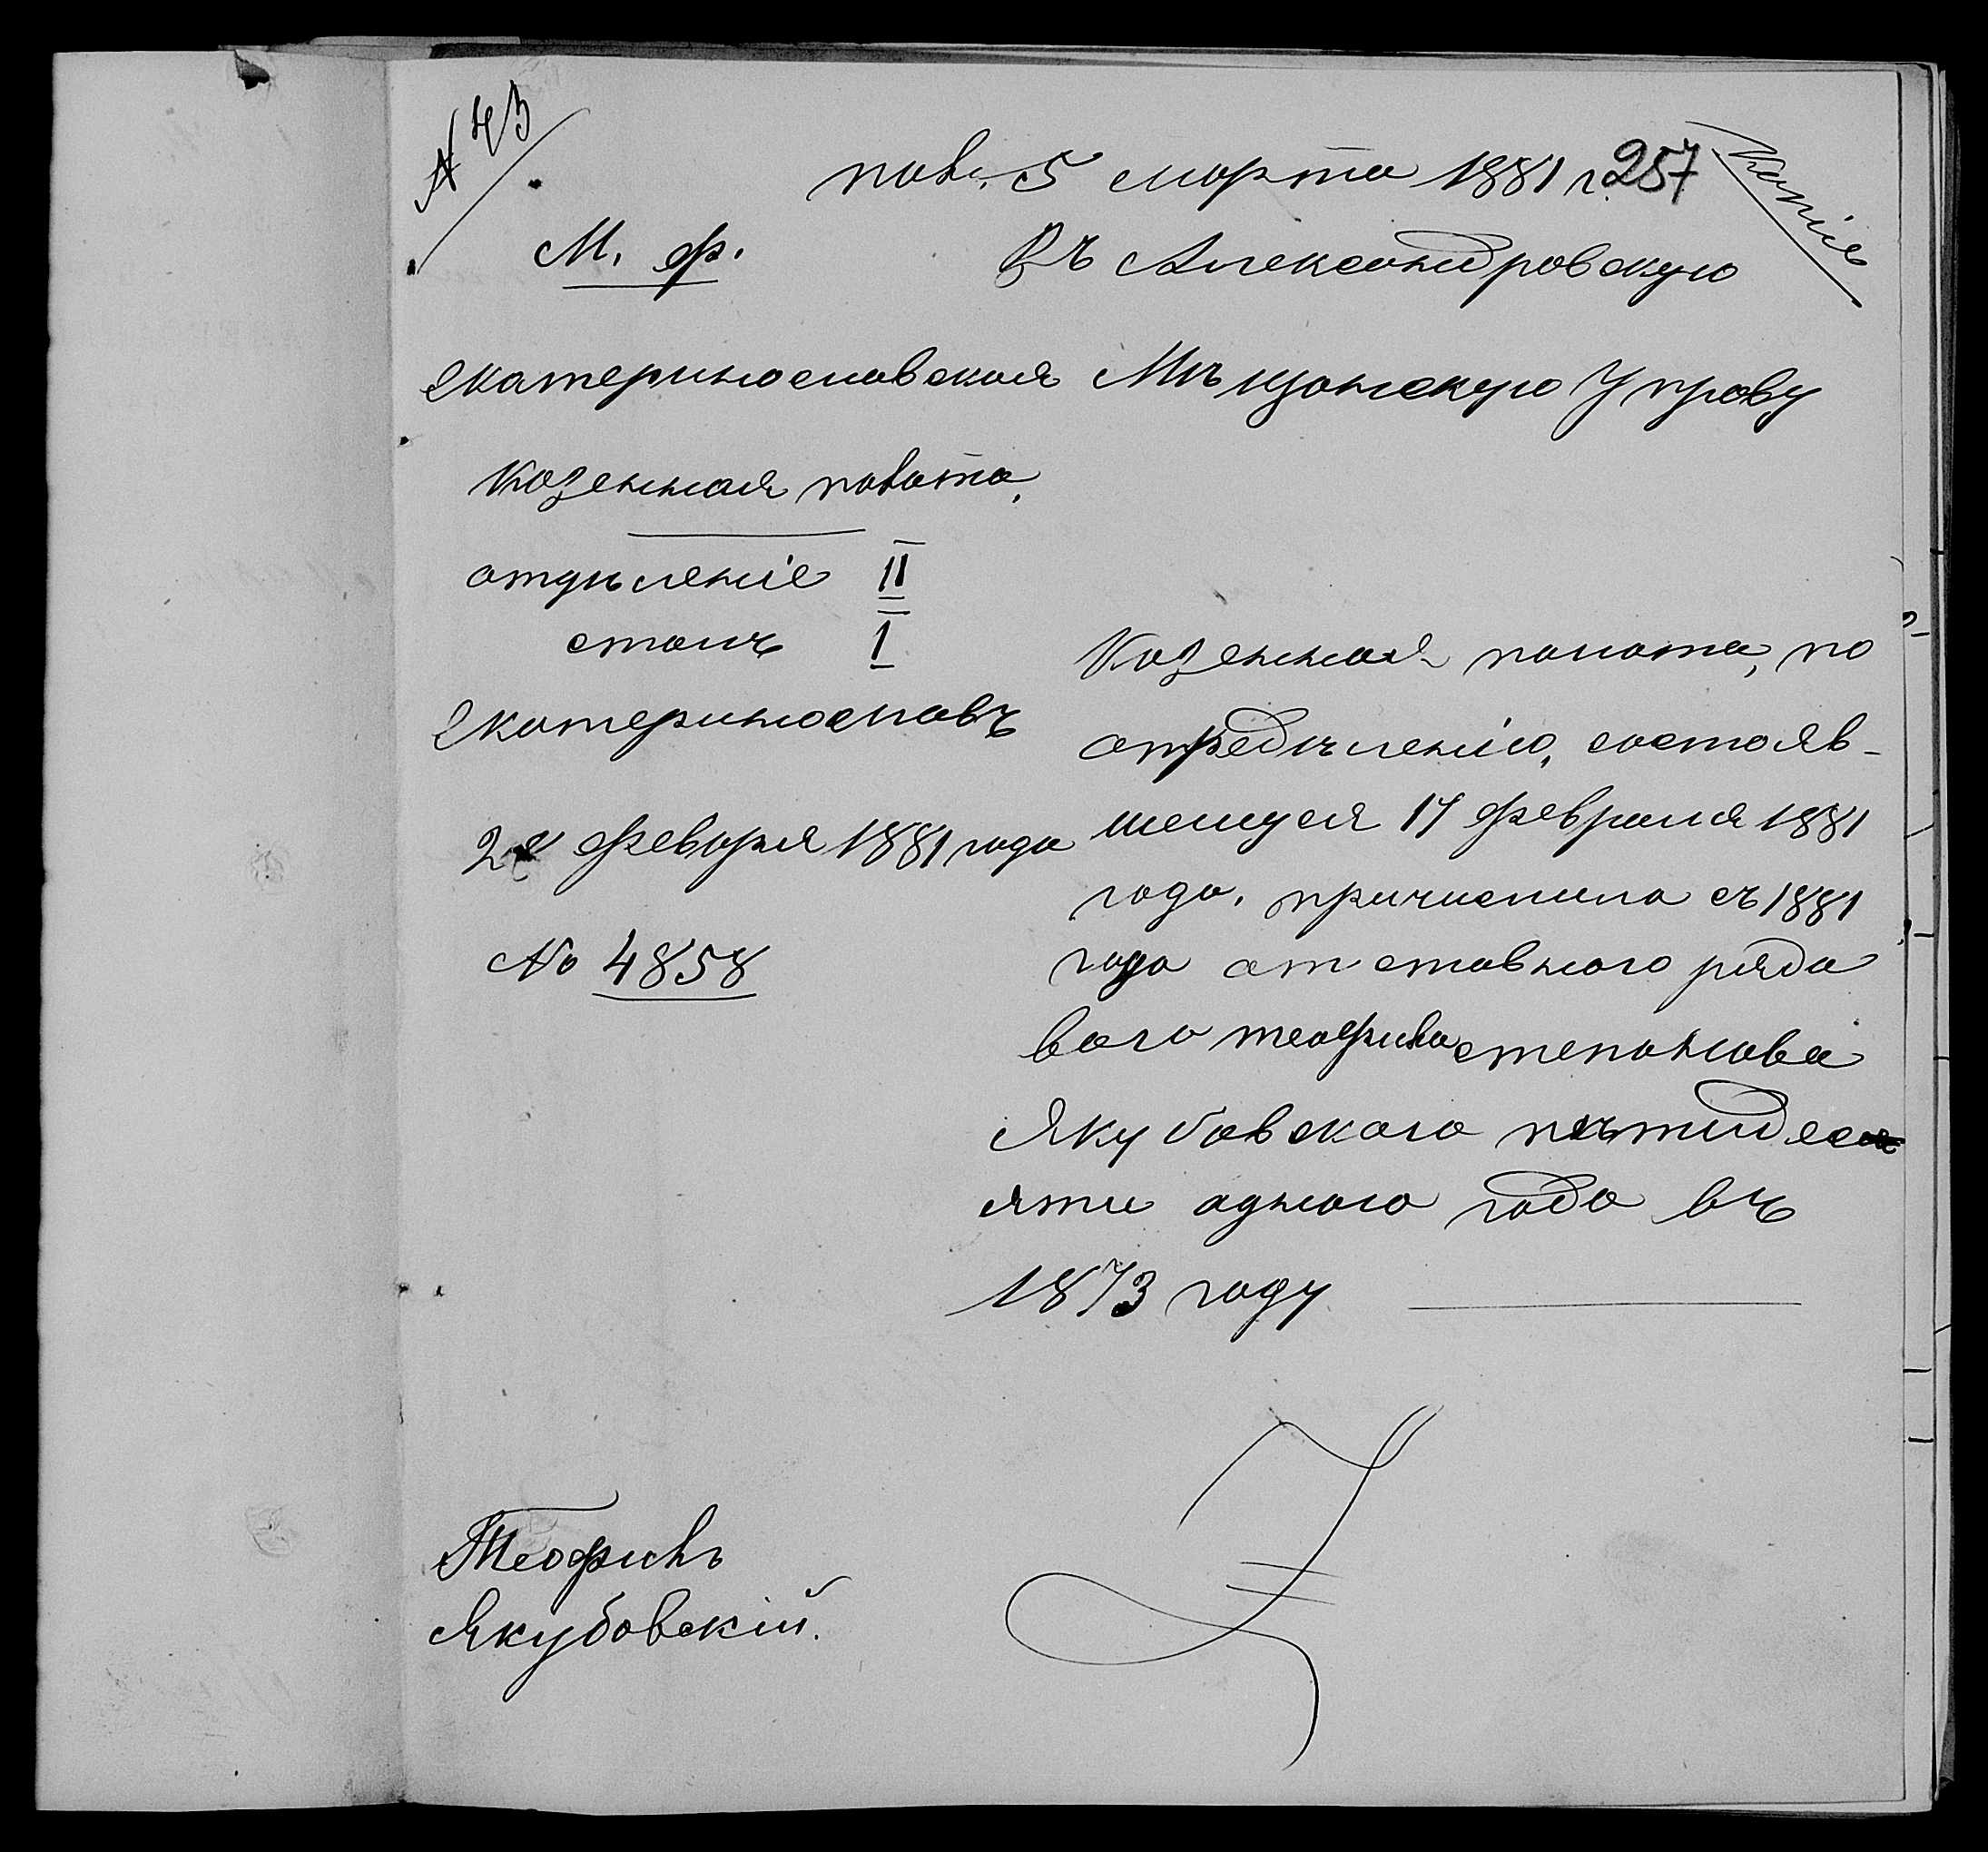 № 43
пол. 5 марта 1881 г. 257
Копія
М. Ф.
Въ Александровскую
Екатеринославская Мѣщанскую Управу
Казенная палата,
отдѣленіе II
столъ I
Екатеринославъ
февраля 1881 года
№ 4858
Казенная палата, по
опредѣленію, состояв-
шемуся 17 февраля 1881
года, причислила съ 1881
года отставного рядо
вого теофила степанова
Якубовского пятидес
яти одного года въ
1873 году
Теофилъ
Якубовскій.